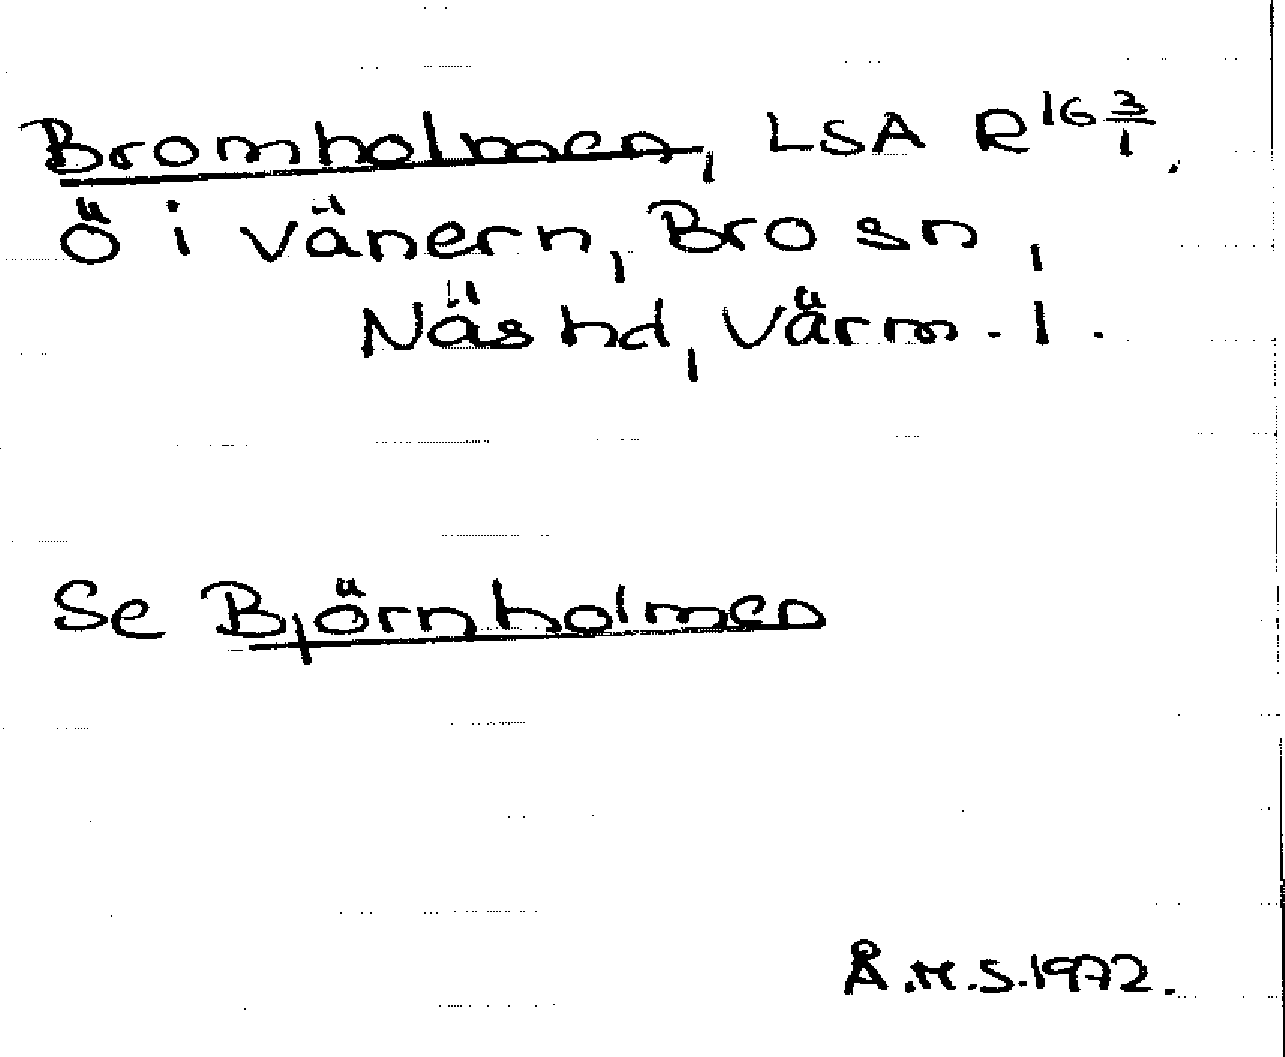 Bromholmen, LSA R 16 3/1.
Ö i Vänern, Bro sn,
Näs hd, Värm. l.
Se Björnholmen
Å.H.S. 1972.